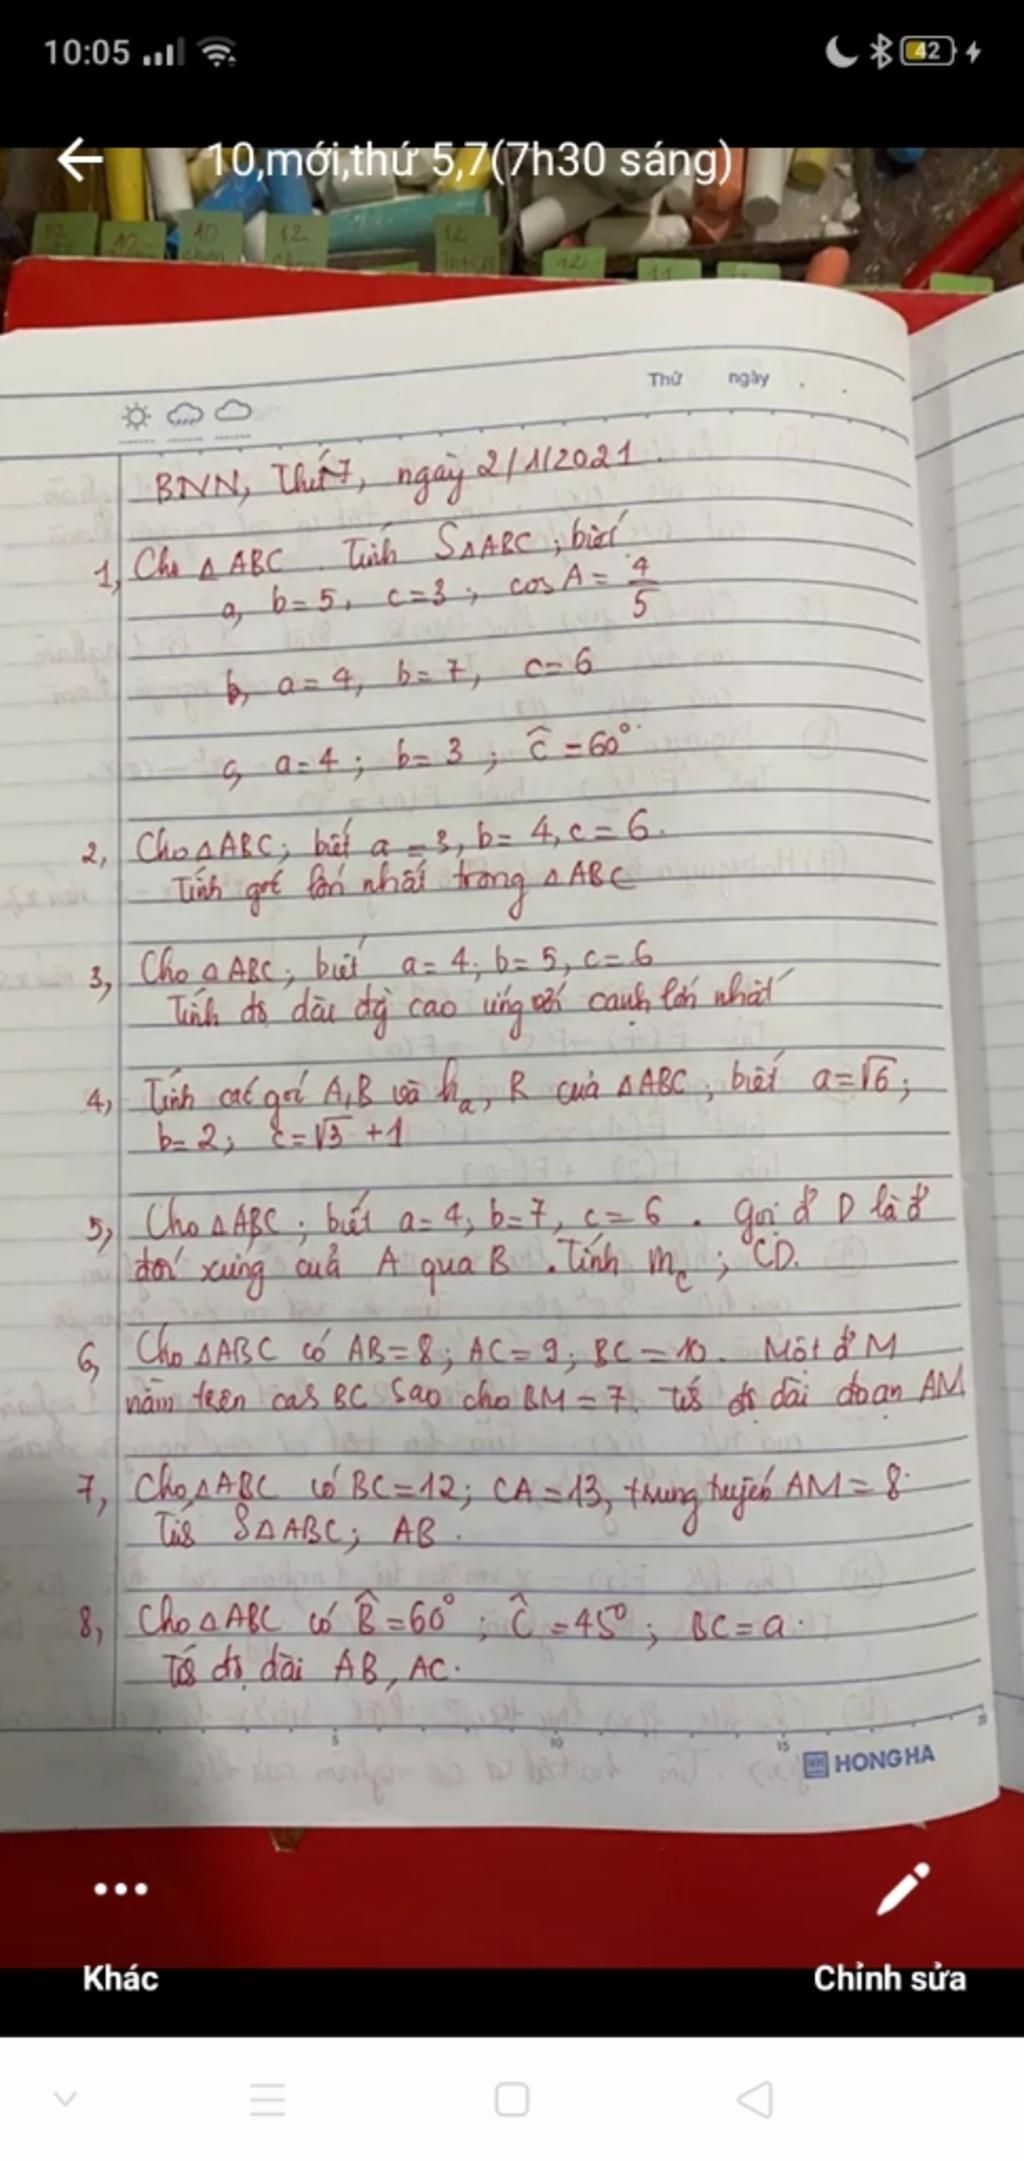 10:05
42
10,mới,thứ 5,7(7h30 sáng)
12
10
12
12
12
11
Thứ ngày
BNN, Thứ 7, ngày 2/1/2021.
1, Cho △ABC. Tính S△ABC; biết
a, b=5, c=3; cos A = 4/5
b, a=4, b=7, c=6
c, a=4; b=3; Ĉ=60°
2, Cho △ABC; biết a=3, b=4, c=6.
Tính góc lớn nhất trong △ABC
3, Cho △ABC; biết a=4; b=5, c=6
Tính độ dài đg cao ứng với cạnh lớn nhất
4, Tính các góc A, B và hₐ, R của △ABC; biết a=√6;
b=2; c=√3+1
5, Cho △ABC; biết a=4, b=7, c=6. Gọi đ' D là đ'
đối xứng của A qua B. Tính m_c; CD.
6, Cho △ABC có AB=8; AC=9; BC=10. Một đ' M
nằm trên cạnh BC sao cho BM=7. Tính độ dài đoạn AM
7, Cho △ABC có BC=12; CA=13, trung tuyến AM=8.
Tính S△ABC; AB.
8, Cho △ABC có B̂=60°; Ĉ=45°; BC=a.
Tính độ dài AB, AC.
5 10 15 20
HONG HA
Khác
Chỉnh sửa